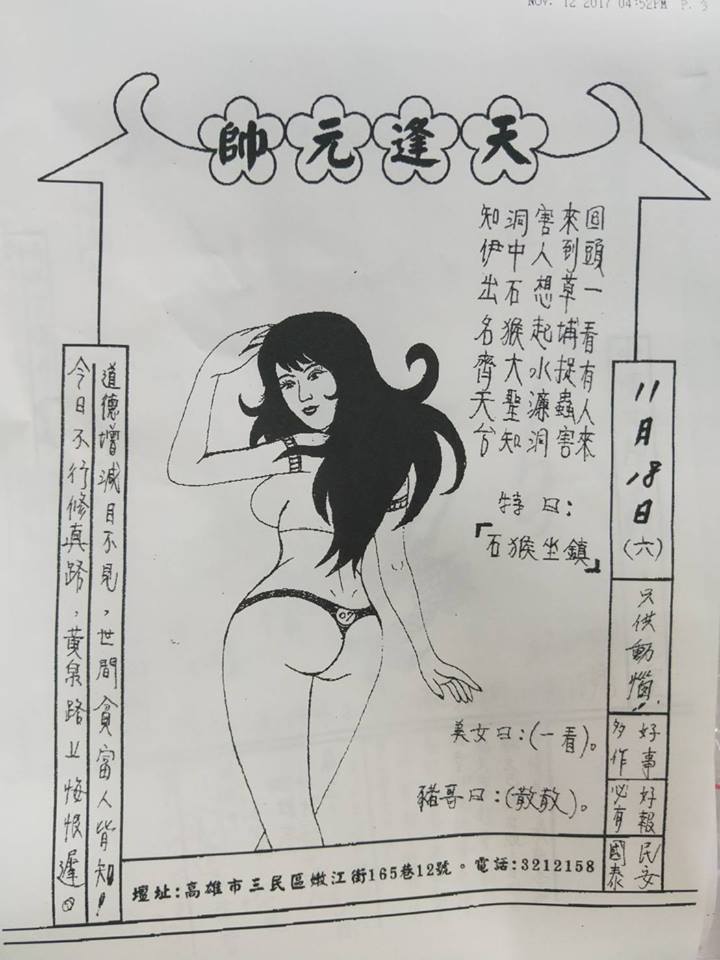 NOV. 12 2017 04:52PM P. 3
天逢元帥
回頭一看有人來
來到草埔捉蟲害
害人想起水濂洞
洞中石猴大聖知
知伊出名齊天台
特曰：
「石猴坐鎮」
美女曰：(一看)。
豬哥曰：(散散)。
11月18日(六)
只供動惱！
好事
多作
好報
必有
民安
國泰
道德增減目不見，世間貧富人皆知！
今日不行修真路，黃泉路上悔恨遲。
壇址：高雄市三民區嫩江街165巷12號。電話：3212158